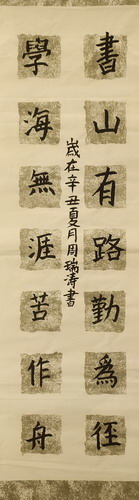 書山有路勤為徑
學海無涯苦作舟
歲在辛丑夏月周瑞濤書